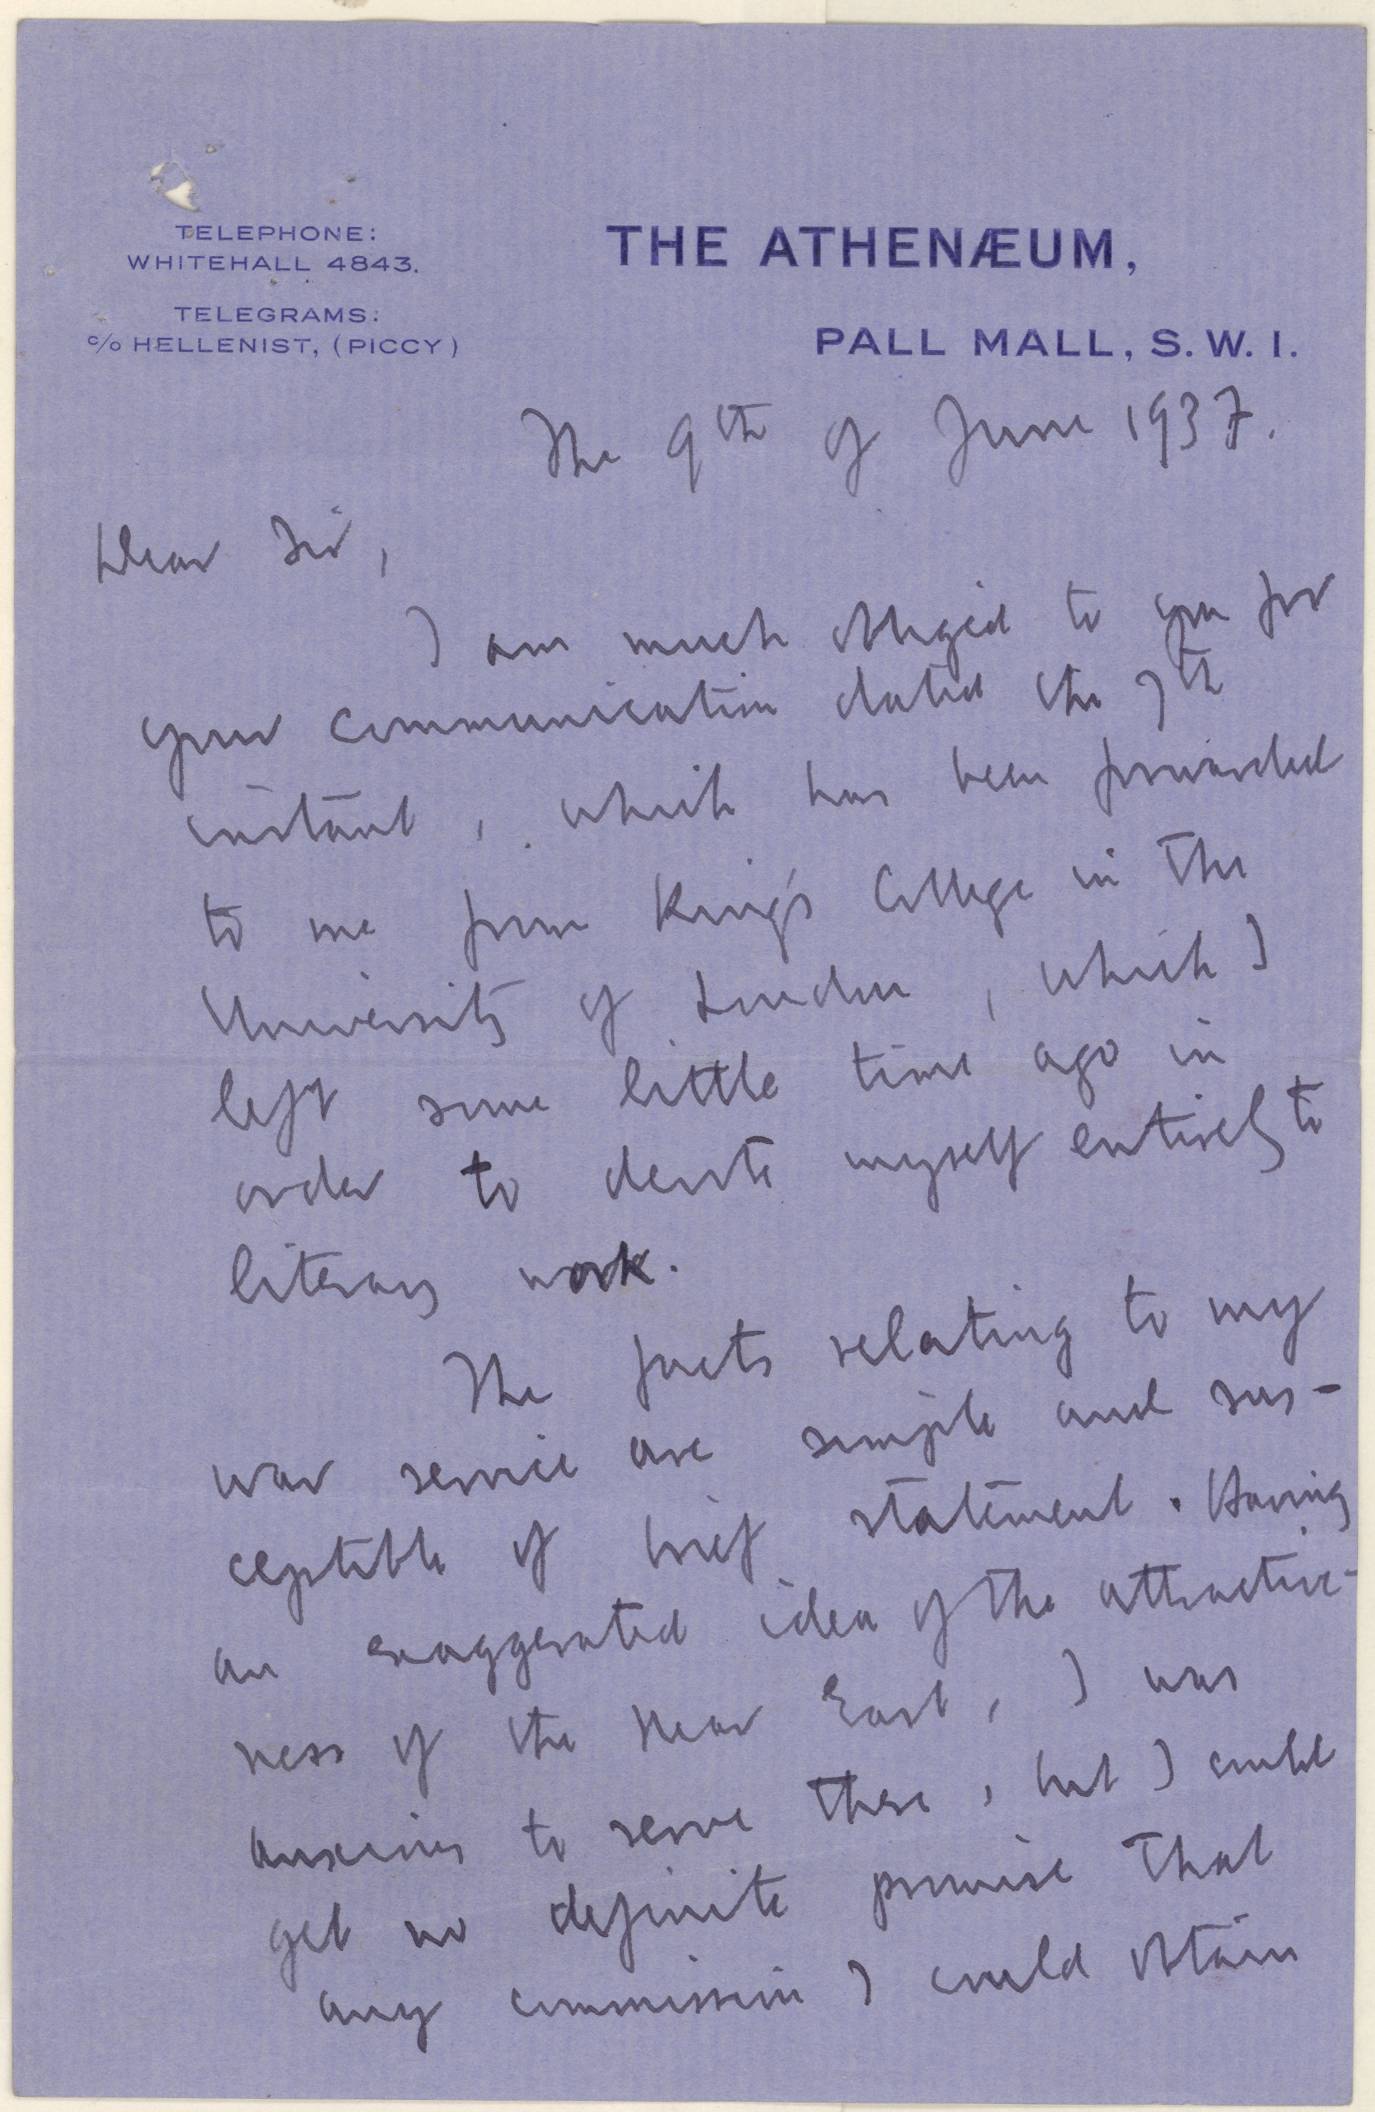 TELEPHONE:
WHITEHALL 4843.
TELEGRAMS:
c/o HELLENIST, (PICCY)
THE ATHENÆUM,
PALL MALL, S. W. 1.
The 9th of June 1937.
Dear Sir,
I am much obliged to you for
your communication dated the 7th
instant, which has been forwarded
to me from King's College in the
University of London, which I
left some little time ago in
order to devote myself entirely to
literary work.
The facts relating to my
war service are simple and sus-
ceptible of brief statement. Having
an exaggerated idea of the attractive-
ness of the Near East, I was
anxious to serve there, but I could
get no definite promise that
any commission I could obtain